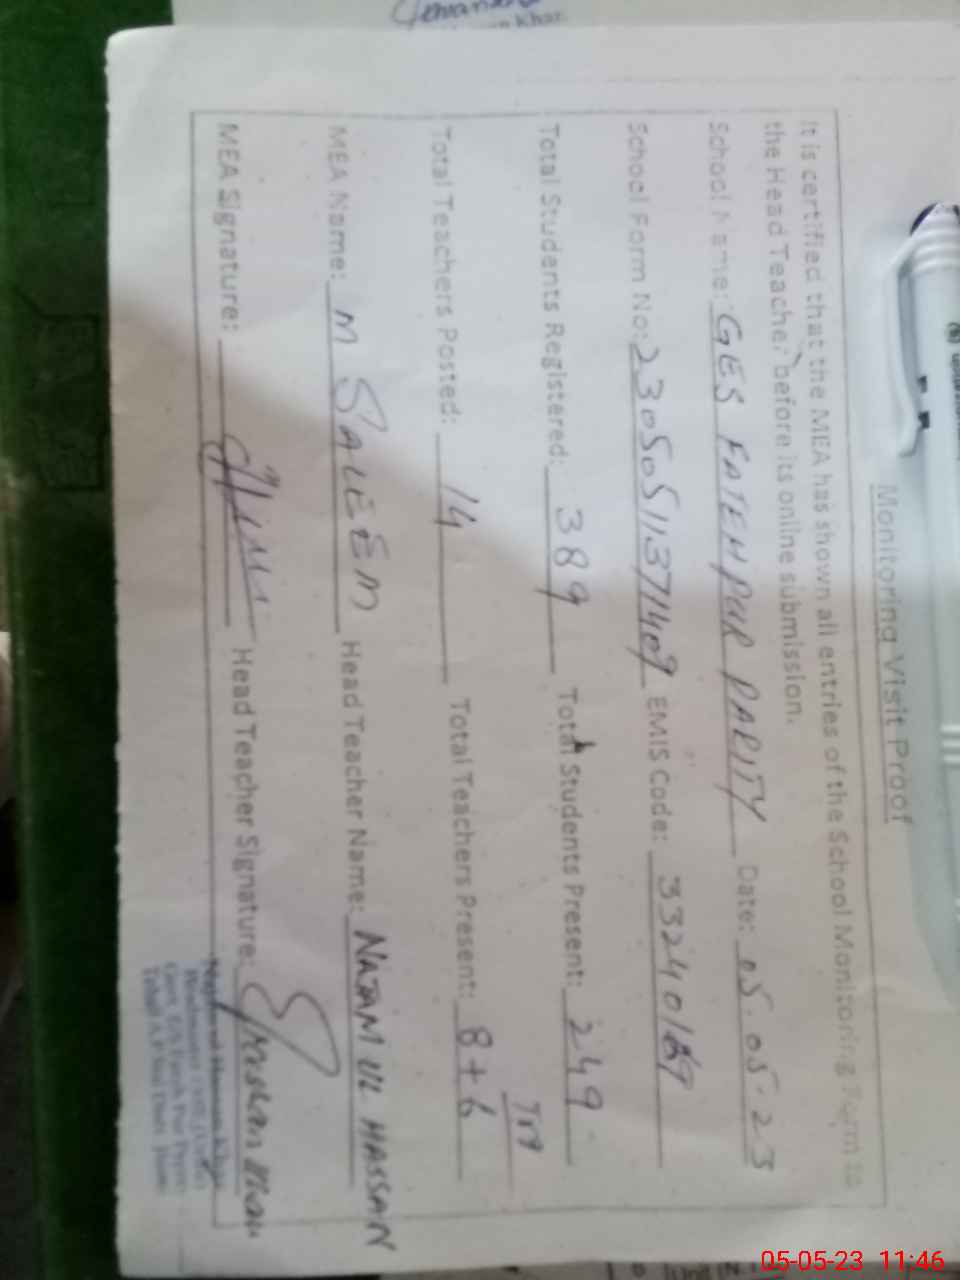 Monitoring Visit Proof
It is certified that the MEA has shown all entries of the School Monitoring Form to
the Head Teacher before its online submission.
School Name: GES FATEHPUR PARITY Date: 05.05.23
School Form No: 23050511371409 EMIS Code:
Total Students Registered: 389 Total Students Present: 249
Total Teachers Posted: 14 Total Teachers Present: 8+6
MEA Name: M SALEEM Head Teacher Name: NAJAM UL HASSAN
MEA Signature: Head Teacher Signature:
05-05-23 11:46